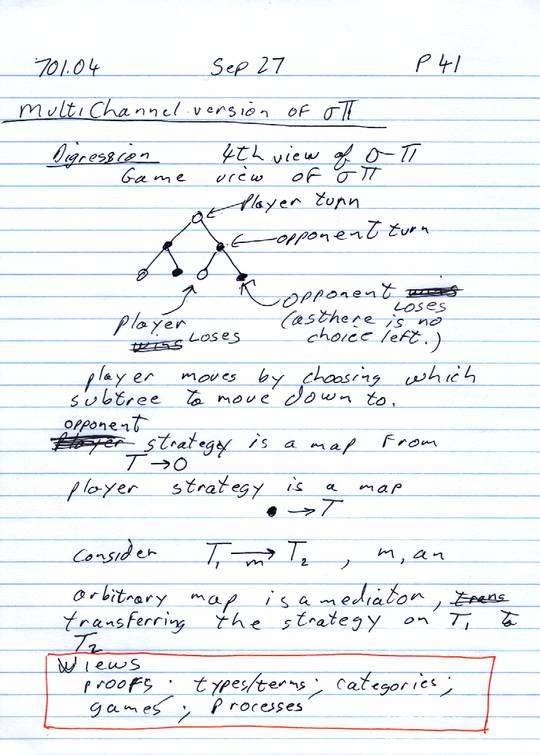 701.04 Sep 27 P 41
MultiChannel version of σΠ
Digression 4th view of σ-Π
Game view of σΠ
player turn
opponent turn
player
wins LOSES
opponent wins
LOSES
(as there is no
choice left.)
player moves by choosing which
subtree to move down to.
opponent
player strategy is a map from
T → O
player strategy is a map
● → T
consider T₁ →m T₂ , m, an
arbitrary map is a mediator, trans
transferring the strategy on T₁ to
T₂
Views
proofs; types/terms; categories;
games; Processes